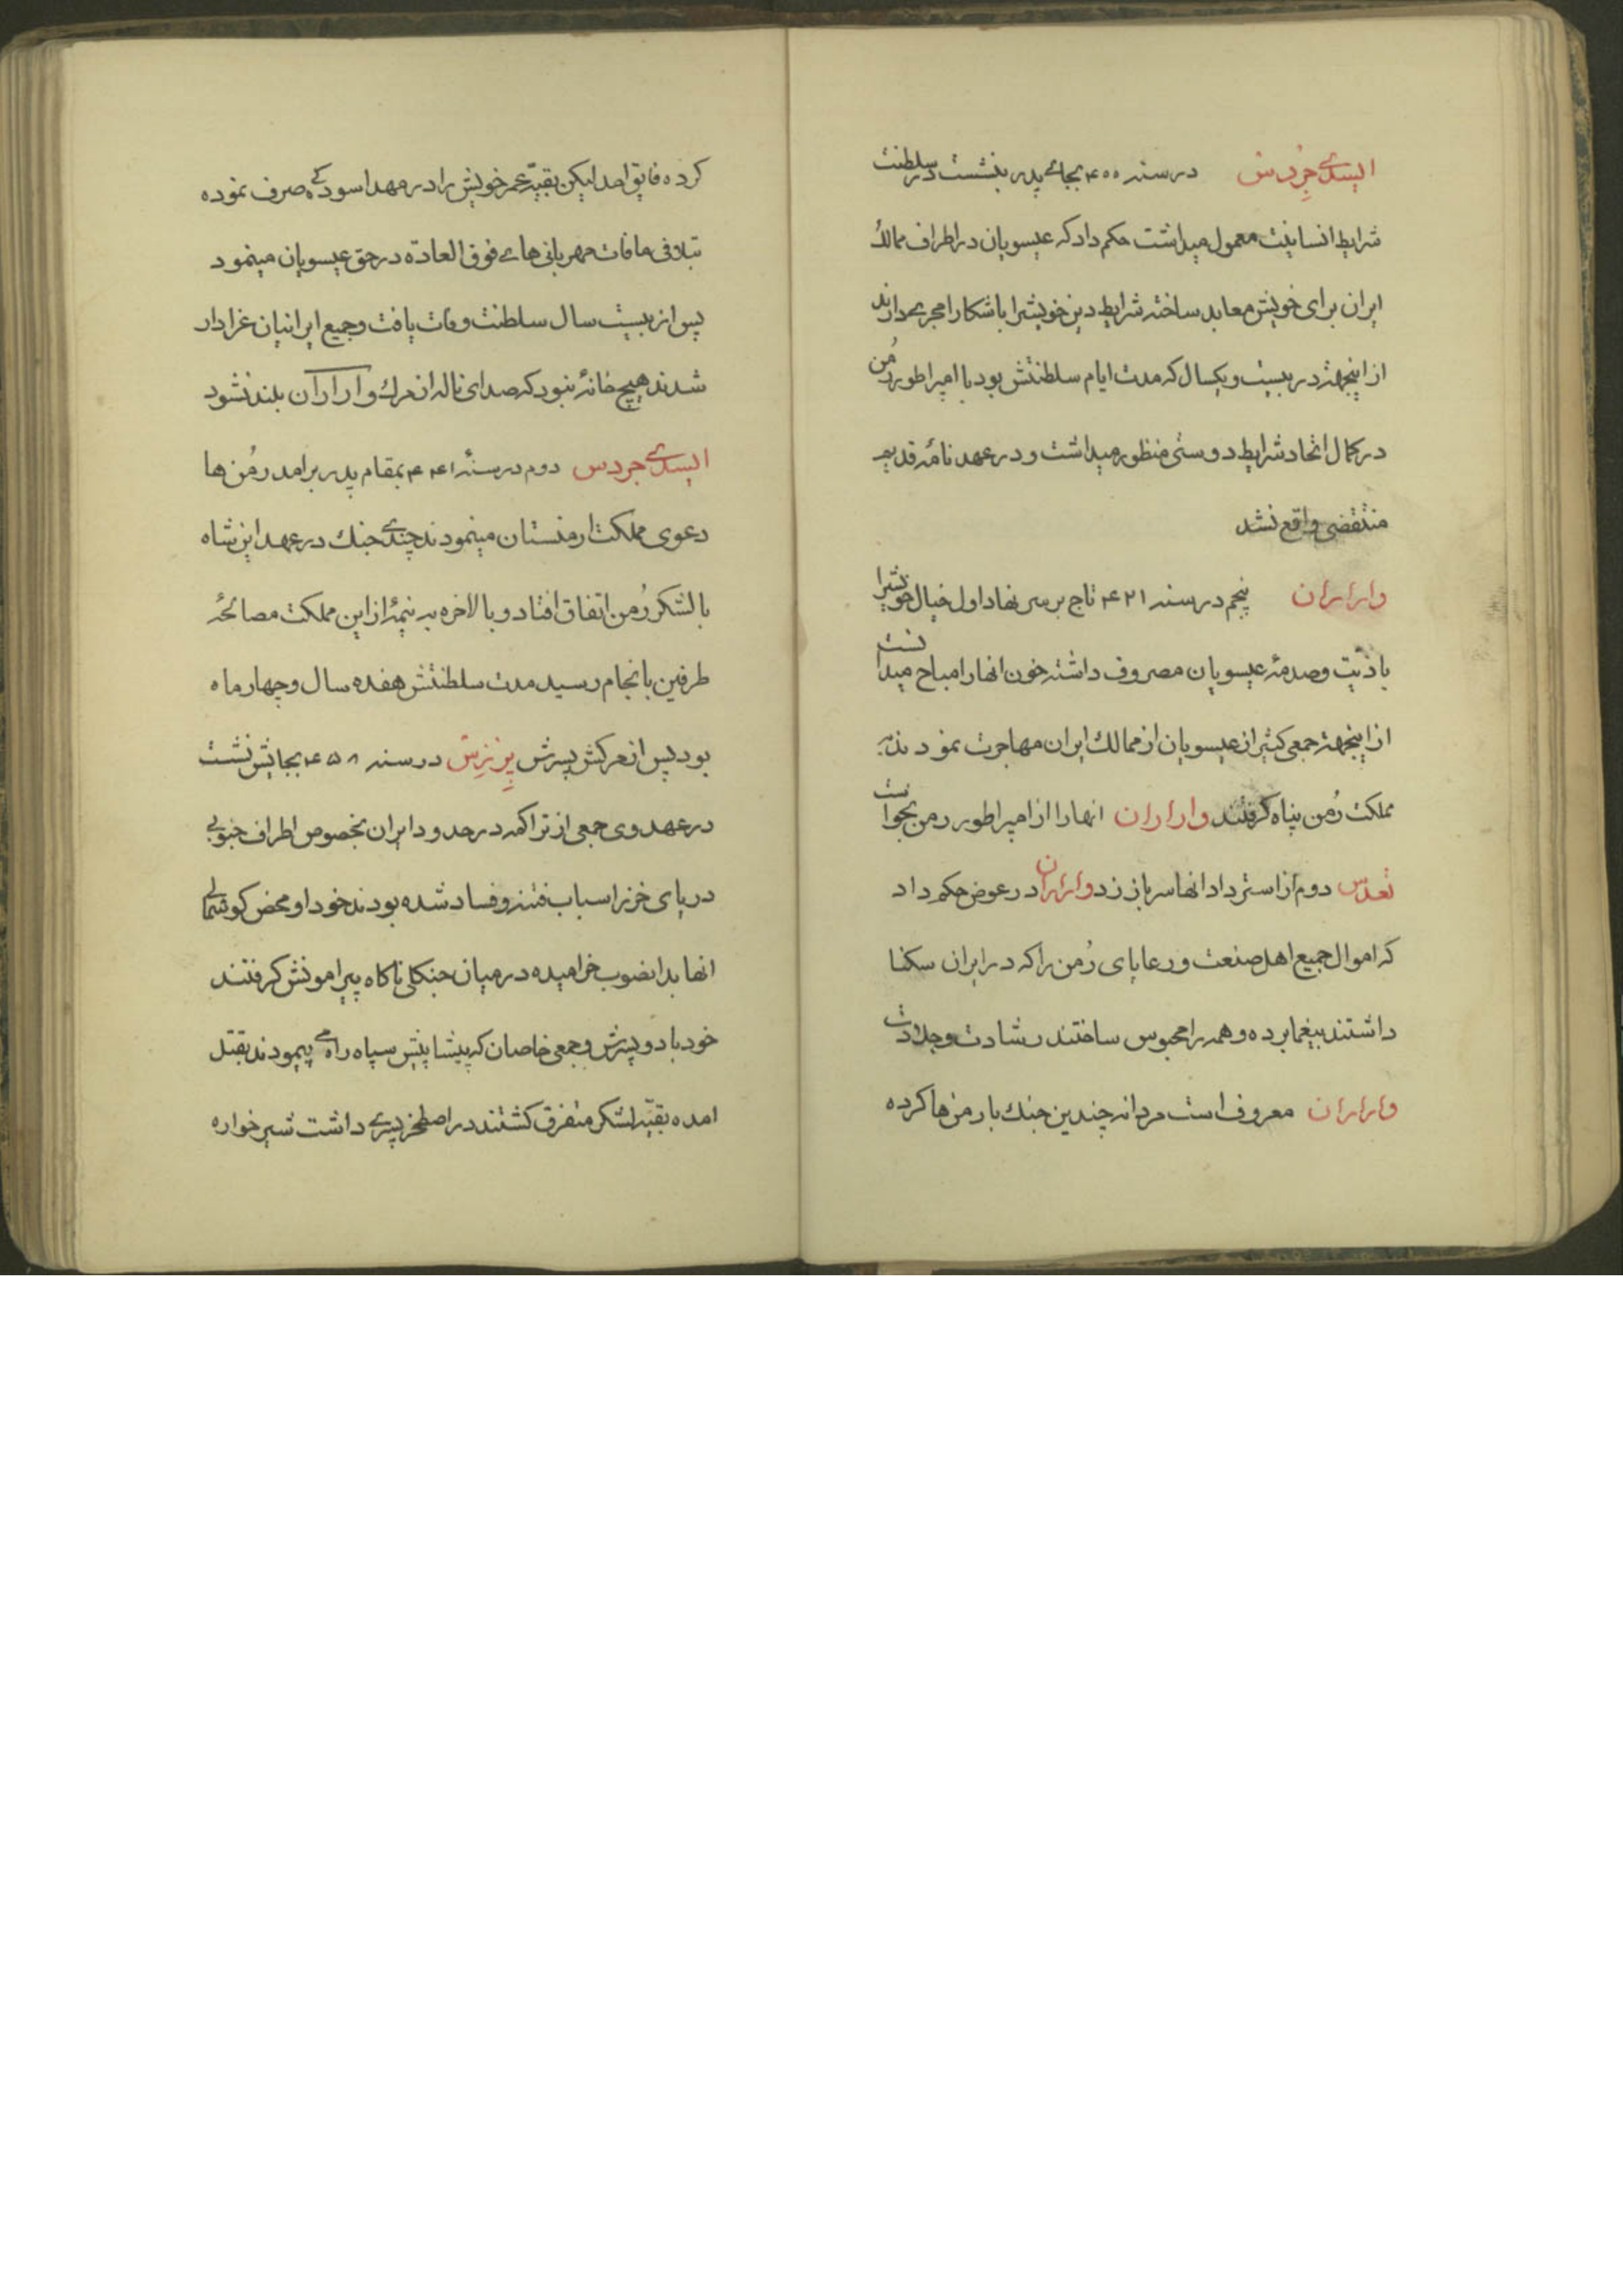 الیسدی جِردس در سنه ۴۰۰ بجای پدر بنشست در سلطنت
شرایط انسانیت معمول میداشت حکم داد که عیسویان در اطراف ممالک
ایران برای خویش معابد ساخته شرایط دین خویشرا باشکارا مجری دارند
از اینجهة در بیست و یکسال که مدت ایام سلطنتش بود با امپراطور رُمن
در کمال اتحاد شرایط دوستی منظور میداشت و در عهد نامهٔ قدیم
منتقضی واقع نشد
واراران پنجم در سنه ۴۲۱ تاج بر سر نهاد اول خیال خویشرا
باذیت وصدمهٔ عیسویان مصروف داشته خون انها را مباح میدانست
از اینجهة جمعی کثیر از عیسویان از ممالک ایران مهاجرت نمودند به
مملکت رُمن پناه کرفتند واراران انها را از امپراطور رمن بخواست
تعدس دوم از استرداد انها سر باز زد واراران در عوض حکم داد
که اموال جمیع اهل صنعت و رعایای رُمن را که در ایران سکنا
داشتند بیغما برده و همه را محبوس ساختند رشادت و جلادت
واراران معروف است مردانه چندین جنک با رمن ها کرده
کرده فایق امد لیکن بقیّه عمر خویش را در مهد اسودکی صرف نموده
بتلافی مافات مهربانی های فوق العاده در حق عیسویان مینمود
پس از بیست سال سلطنت وفات یافت و جمیع ایرانیان عزادار
شدند هیچ خانهٔ نبود که صدای ناله از مرک واراران بلند نشود
الیسدی جردس دوم در سنهٔ ۴۴۱ بمقام پدر برامد رمُن ها
دعوی مملکت ارمنستان مینمودند چندی جنک در عهد این شاه
با لشکر رُمن اتفاق افتاد و بالاخره به نیمهٔ از این مملکت مصالحهٔ
طرفین بانجام رسید مدت سلطنتش هفده سال و چهار ماه
بود پس از مرکش پسرش پِرِزِس در سنه ۴۵۸ بجایش نشست
در عهد وی جمعی از تراکمه در حدود ایران بخصوص اطراف جنوبی
دریای خزر اسباب فتنه و فساد شده بودند خود او محض کوشمالی
انها بدانصوب خرامیده در میان جنکلی ناکاه پیرامونش کرفتند
خود با دو پسرش و جمعی خاصان که پیشاپیش سپاه راه می پیمودند بقتل
امده بقیّه لشکر متفرق کشتند در اصطخر پسری داشت شیرخواره